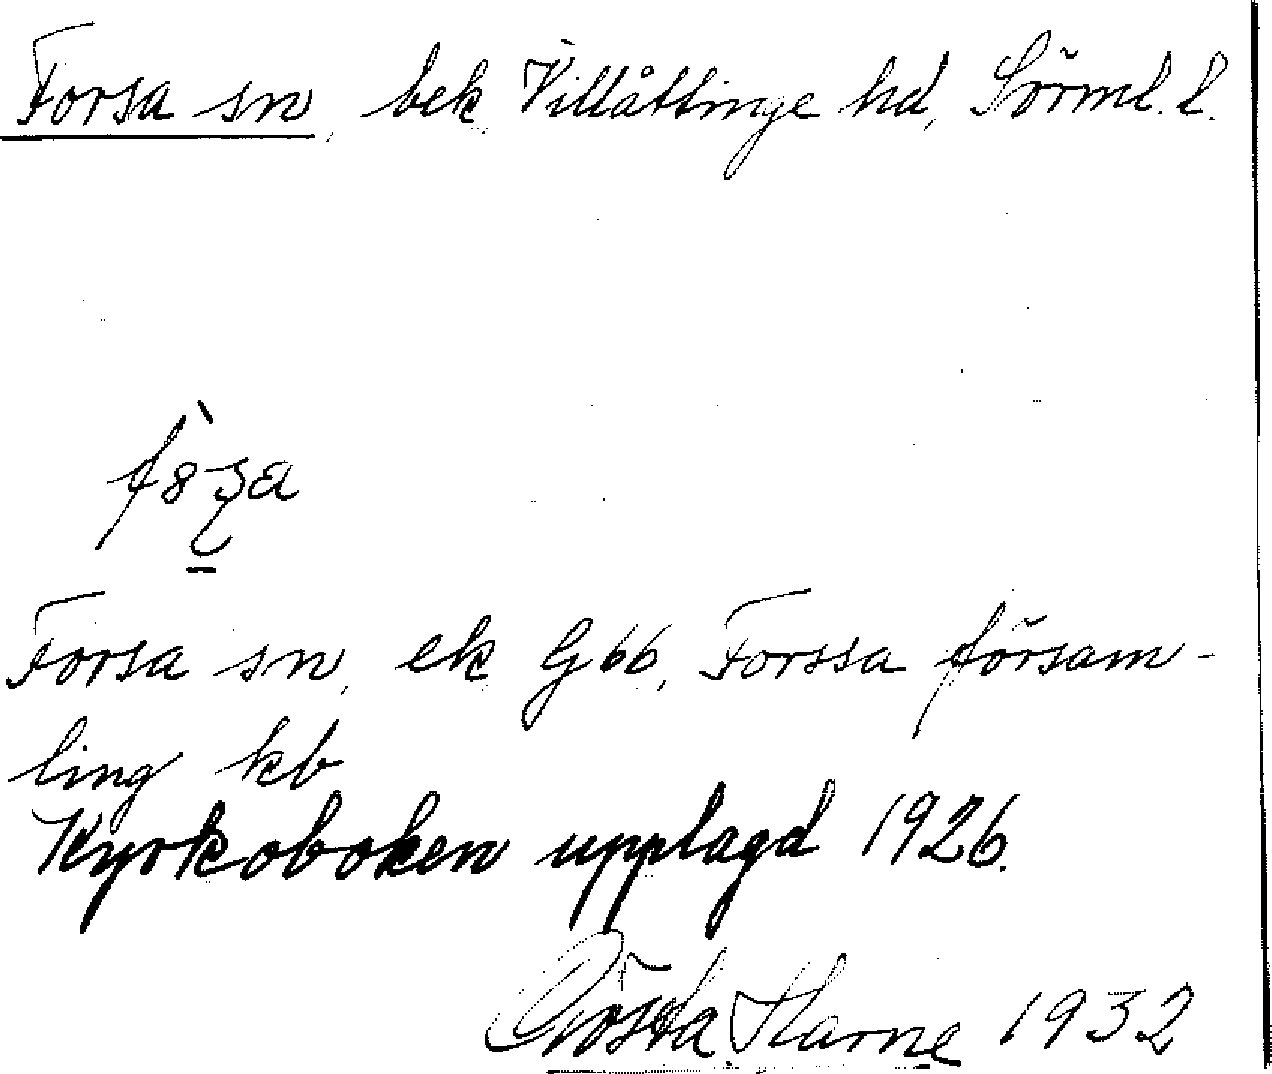 Forsa sn, bek. Villåttinge hd, Sörml. l.
Forsa sn, ek G 66, Forssa försam-
ling kb
Kyrkoboken upplagd 1926.
Gösta Harne 1932